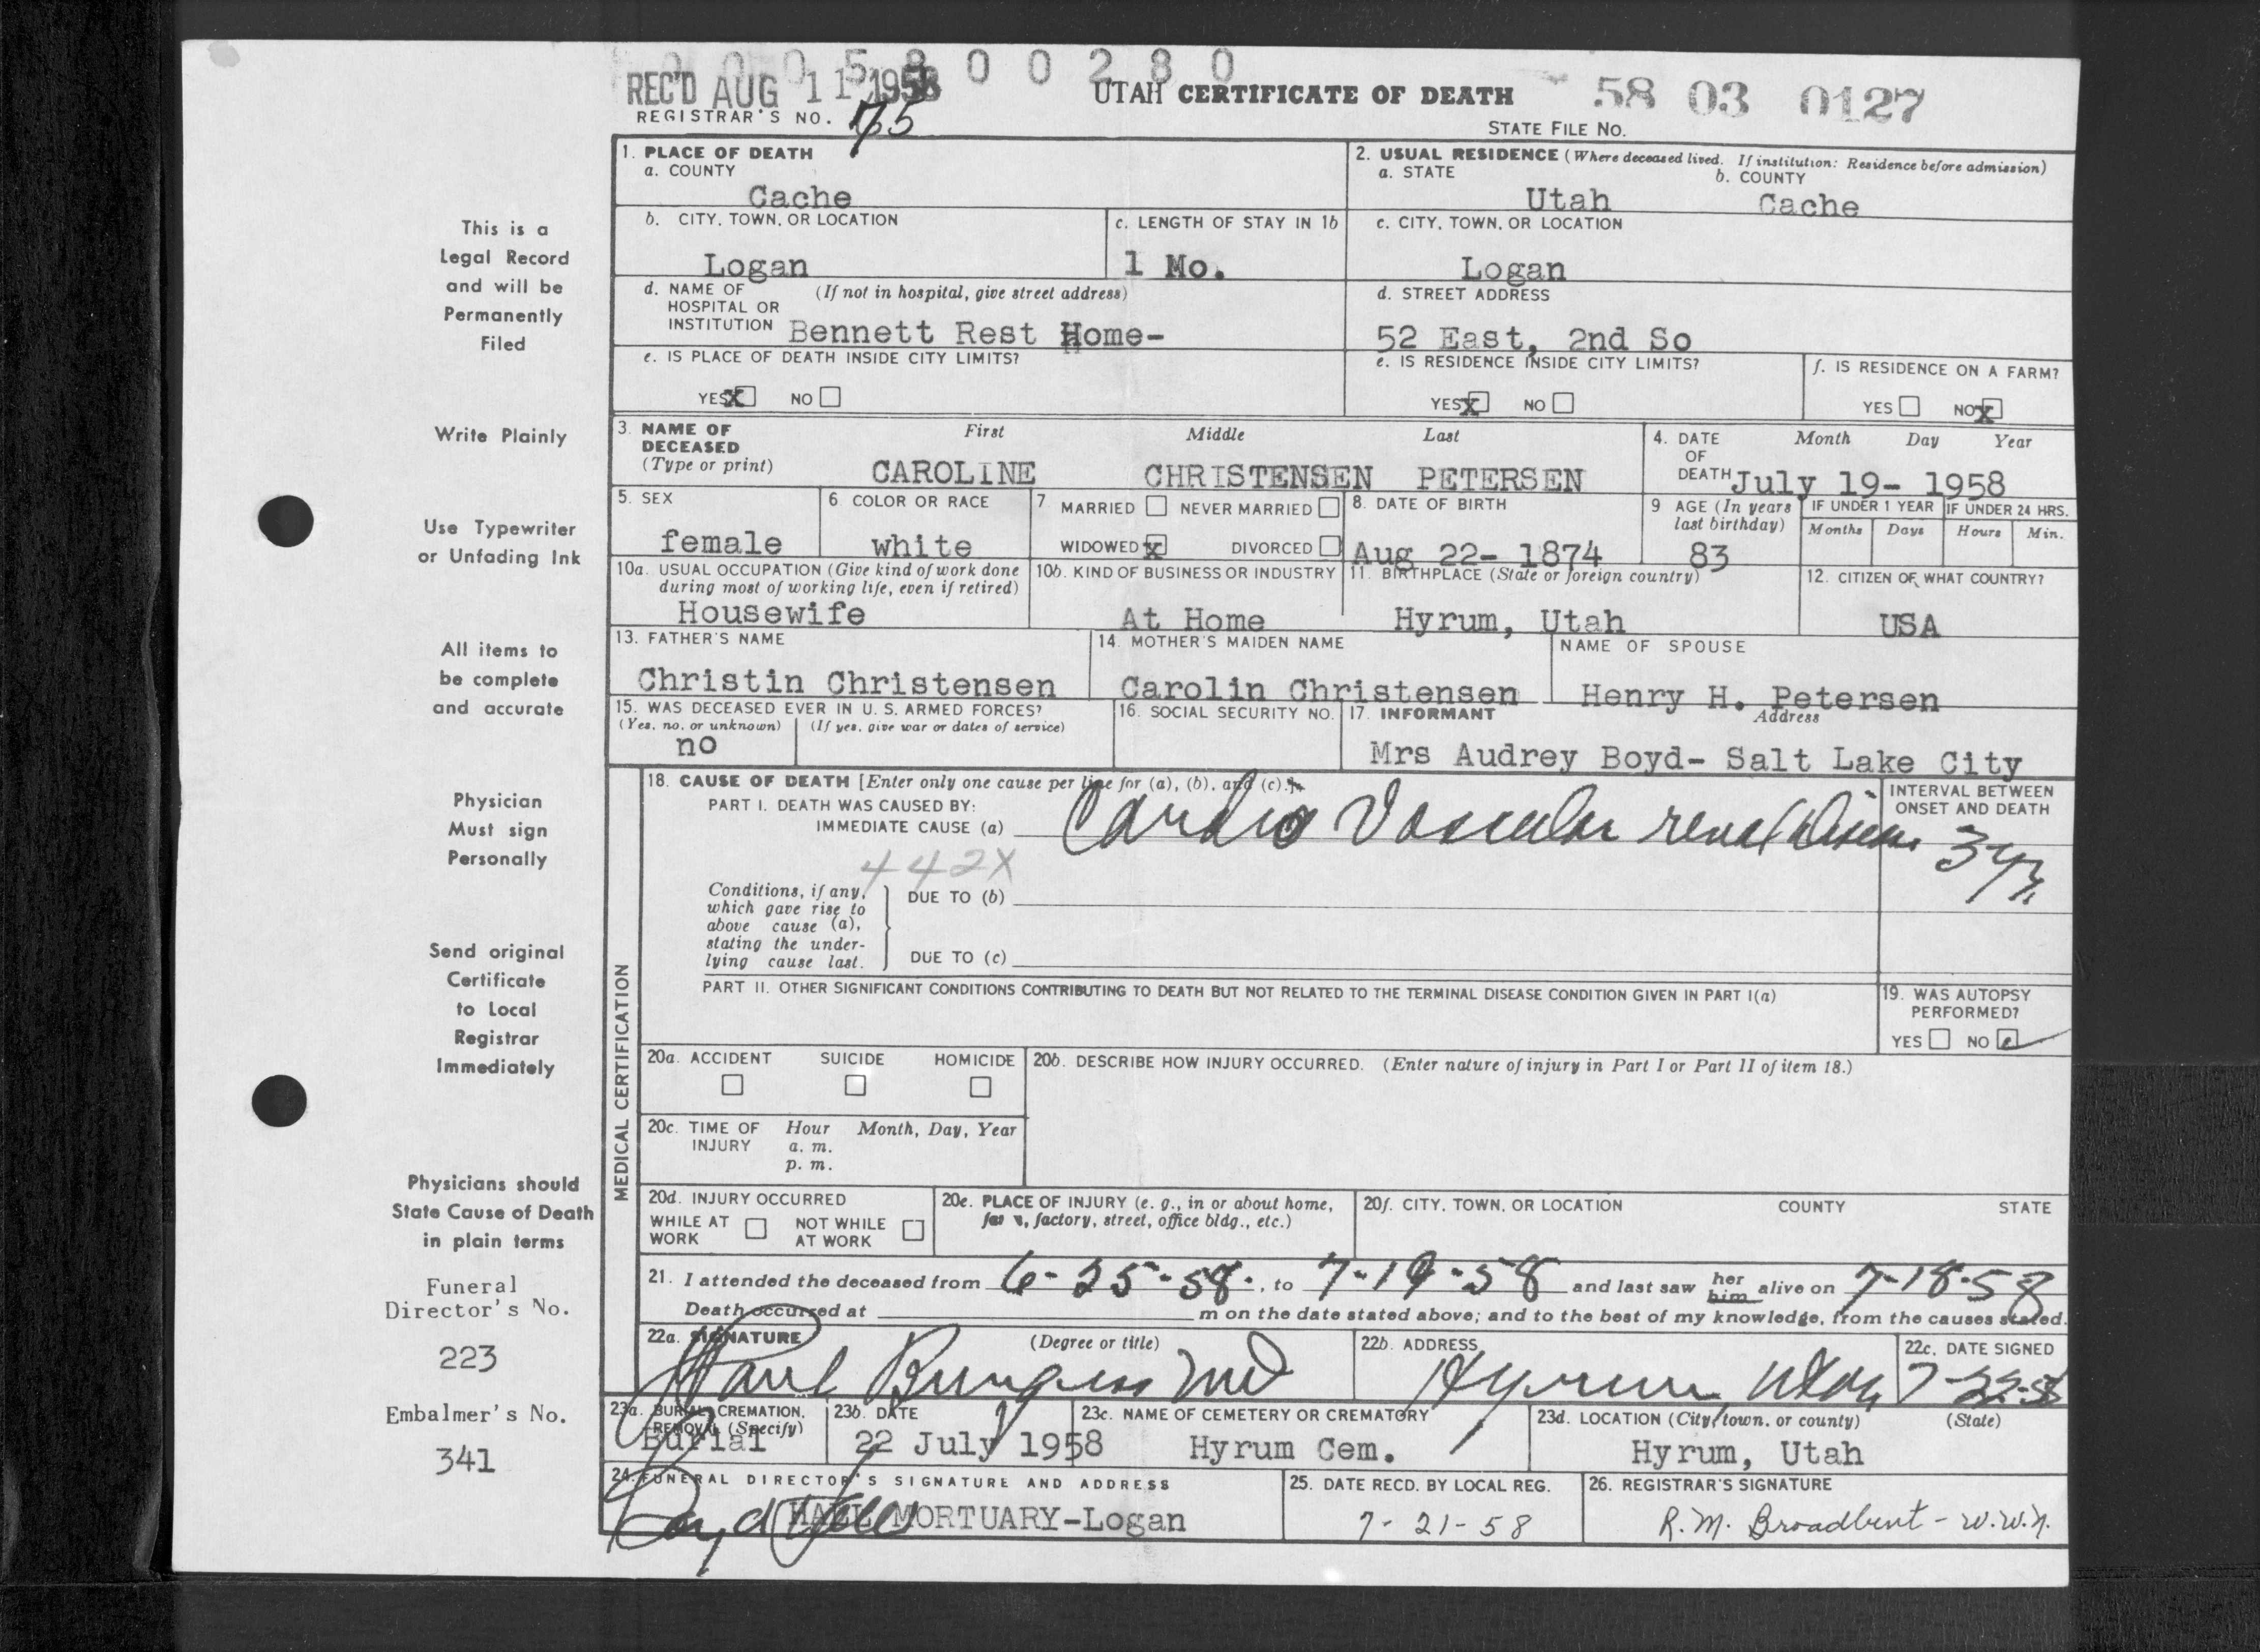 0 0 0 5 8 0 0 2 8 0
REC'D AUG 11 1958
UTAH CERTIFICATE OF DEATH
58 03 0127
REGISTRAR'S NO. 175
STATE FILE NO.
1. PLACE OF DEATH
a. COUNTY
Cache
2. USUAL RESIDENCE (Where deceased lived. If institution: Residence before admission)
a. STATE
b. COUNTY
Utah Cache
b. CITY, TOWN, OR LOCATION
Logan
c. LENGTH OF STAY IN 1b
1 Mo.
c. CITY, TOWN, OR LOCATION
Logan
d. NAME OF HOSPITAL OR INSTITUTION
(If not in hospital, give street address)
Bennett Rest Home-
d. STREET ADDRESS
52 East, 2nd So
e. IS PLACE OF DEATH INSIDE CITY LIMITS?
YES X NO
e. IS RESIDENCE INSIDE CITY LIMITS?
YES X NO
f. IS RESIDENCE ON A FARM?
YES NO X
3. NAME OF DECEASED
(Type or print)
First Middle Last
CAROLINE CHRISTENSEN PETERSEN
4. DATE OF DEATH
Month Day Year
July 19- 1958
5. SEX
female
6. COLOR OR RACE
white
7. MARRIED NEVER MARRIED
WIDOWED X DIVORCED
8. DATE OF BIRTH
Aug 22- 1874
9 AGE (In years last birthday)
83
IF UNDER 1 YEAR
Months Days
IF UNDER 24 HRS.
Hours Min.
10a. USUAL OCCUPATION (Give kind of work done
during most of working life, even if retired)
Housewife
10b. KIND OF BUSINESS OR INDUSTRY
At Home
11. BIRTHPLACE (State or foreign country)
Hyrum, Utah
12. CITIZEN OF WHAT COUNTRY?
USA
13. FATHER'S NAME
Christin Christensen
14. MOTHER'S MAIDEN NAME
Carolin Christensen
NAME OF SPOUSE
Henry H. Petersen
15. WAS DECEASED EVER IN U. S. ARMED FORCES?
(Yes, no, or unknown) (If yes, give war or dates of service)
no
16. SOCIAL SECURITY NO.
17. INFORMANT
Address
Mrs Audrey Boyd- Salt Lake City
MEDICAL CERTIFICATION
18. CAUSE OF DEATH [Enter only one cause per line for (a), (b), and (c).]
PART I. DEATH WAS CAUSED BY:
IMMEDIATE CAUSE (a) Cardio Vascular renal disease
INTERVAL BETWEEN ONSET AND DEATH
3 yr
442X
Conditions, if any,
which gave rise to
above cause (a),
stating the under-
lying cause last.
DUE TO (b)
DUE TO (c)
PART II. OTHER SIGNIFICANT CONDITIONS CONTRIBUTING TO DEATH BUT NOT RELATED TO THE TERMINAL DISEASE CONDITION GIVEN IN PART I(a)
19. WAS AUTOPSY PERFORMED?
YES NO
20a. ACCIDENT SUICIDE HOMICIDE
20b. DESCRIBE HOW INJURY OCCURRED. (Enter nature of injury in Part I or Part II of item 18.)
20c. TIME OF INJURY
Hour Month, Day, Year
a. m.
p. m.
20d. INJURY OCCURRED
WHILE AT WORK NOT WHILE AT WORK
20e. PLACE OF INJURY (e. g., in or about home,
factory, street, office bldg., etc.)
20f. CITY, TOWN, OR LOCATION COUNTY STATE
21. I attended the deceased from 6-25-58, to 7-19-58 and last saw her him alive on 7-18-58
Death occurred at m on the date stated above; and to the best of my knowledge, from the causes stated.
22a. SIGNATURE (Degree or title)
Paul Burgess MD
22b. ADDRESS
Hyrum Utah
22c. DATE SIGNED
7-22-58
23a. BURIAL, CREMATION, REMOVAL (Specify)
Burial
23b. DATE
22 July 1958
23c. NAME OF CEMETERY OR CREMATORY
Hyrum Cem.
23d. LOCATION (City, town, or county) (State)
Hyrum, Utah
24. FUNERAL DIRECTOR'S SIGNATURE AND ADDRESS
HALL MORTUARY-Logan
25. DATE RECD. BY LOCAL REG.
7-21-58
26. REGISTRAR'S SIGNATURE
R. M. Broadbent - w.w.n.
This is a
Legal Record
and will be
Permanently
Filed
Write Plainly
Use Typewriter
or Unfading Ink
All items to
be complete
and accurate
Physician
Must sign
Personally
Send original
Certificate
to Local
Registrar
Immediately
Physicians should
State Cause of Death
in plain terms
Funeral
Director's No.
223
Embalmer's No.
341